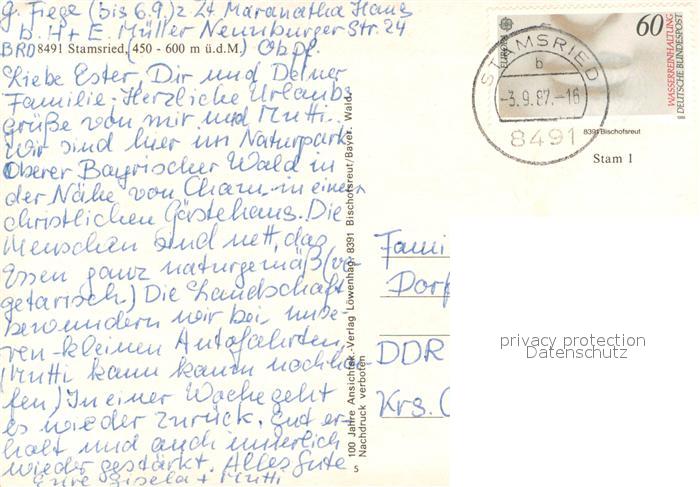 G. Fiege (bis 6.9.) z. Zt Maranatha Haus
b. H + E. Müller Neunburger Str. 24
BRD 8491 Stamsried, (450 - 600 m ü.d.M.) Obpf.
Liebe Ester, Dir und Deiner
Familie: Herzliche Urlaubs
grüße von mir und Mutti.
Wir sind hier im Naturpark
Oberer Bayrischer Wald in
der Nähe von Cham in einem
christlichen Gästehaus. Die
Menschen sind nett, das
Essen ganz naturgemäß (ve-
getarisch.) Die Landschaft
bewundern wir bei unse-
ren kleinen Autofahrten,
(Mutti kann kaum noch lau
fen) In einer Woche geht
es wieder zurück, gut er-
holt und auch innerlich
wieder gestärkt. Alles Gute
Eure Gisela + Mutti
100 Jahre Ansichtsk.-Verlag Löwenhag, 8391 Bischofsreut/Bayer. Wald
Nachdruck verboten
5
STAMSRIED
b
-3.9.87.-16
8491
EUROPA
60
WASSERREINHALTUNG
DEUTSCHE BUNDESPOST
1986
8391 Bischofsreut
Stam 1
Fami
Dorf
DDR
Krs. (
privacy protection
Datenschutz